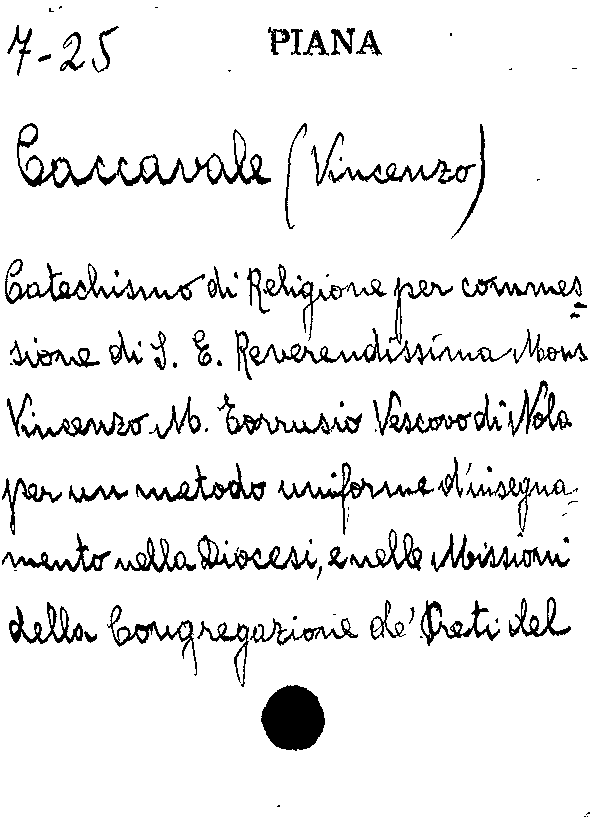 7-25 PIANA
Caccavale (Vincenzo)
Catechismo di Religione per commes=
sione di S. E. Reverendissima Mons
Vincenzo M. Torrusio Vescovo di Nola
per un metodo uniforme d'insegna=
mento nella Diocesi, e nelle Missioni
della Congregazione de' Preti del